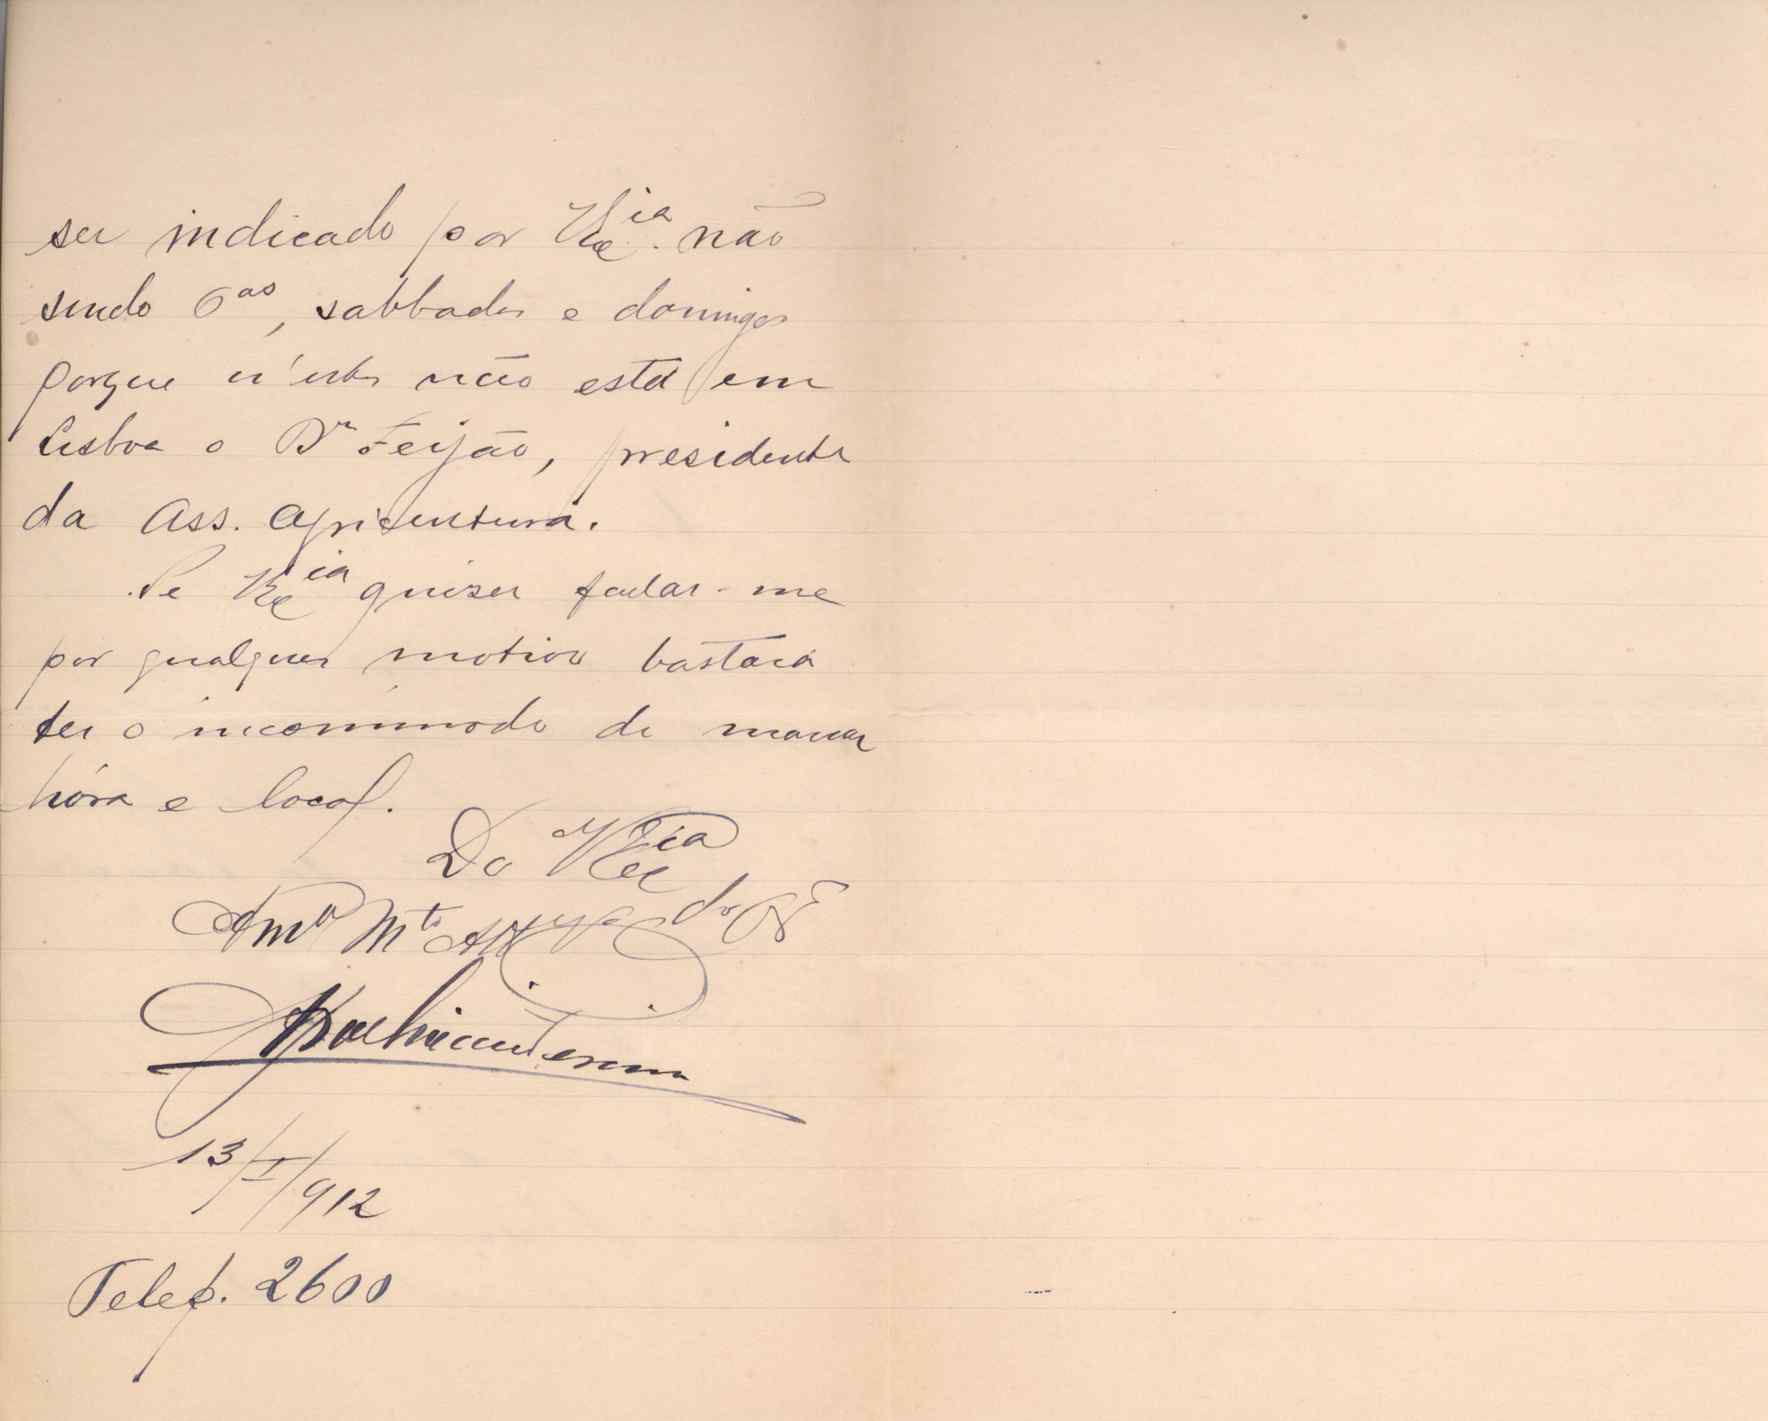 ser indicado por V Exᶜⁱᵃ. não
sendo 6ᵃˢ, sabbados e domingos
porque n'estes não está em
Lisboa o Dʳ Feijão, presidente
da Ass. Agricultura.
Se V Exᶜⁱᵃ quizer fallar-me
por qualquer motivo bastará
ter o incommodo de marcar
hóra e local.
De V Exᶜⁱᵃ
Amº Mᵗº
13/I/912
Telef. 2600